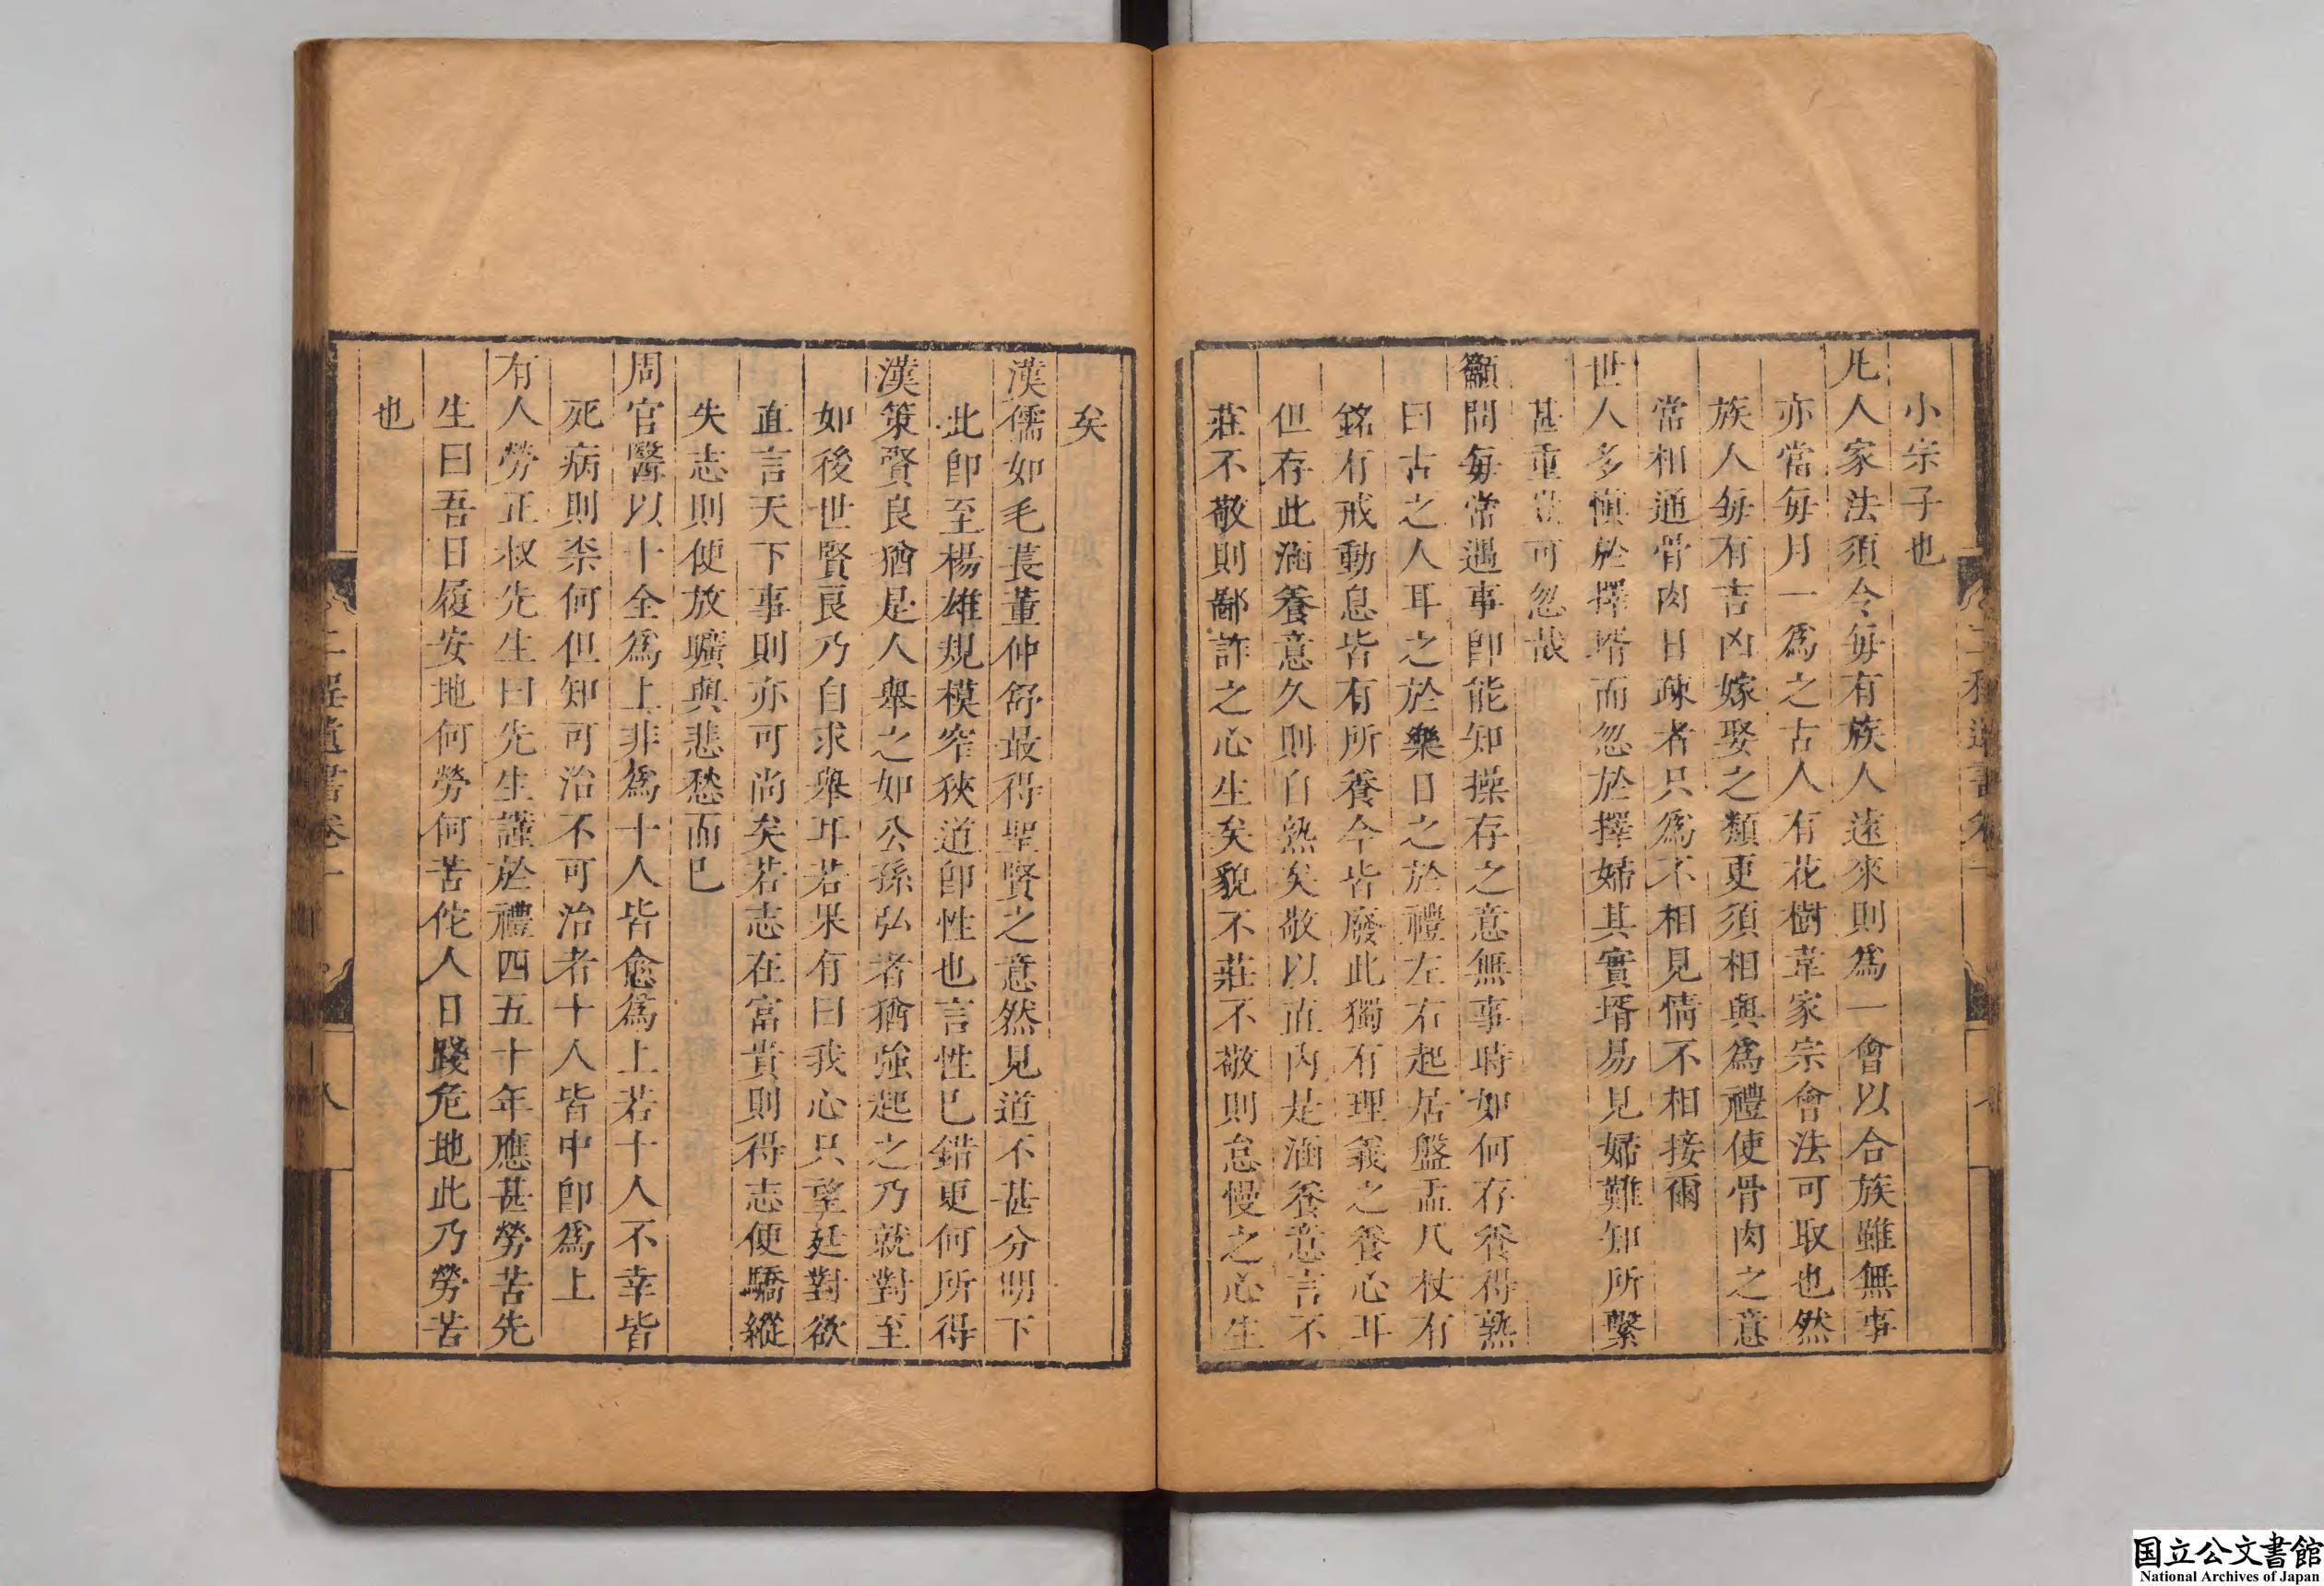 小宗子也
凡人家法須令每有族人遠來則爲一會以合族雖無事
亦當每月一爲之古人有花樹韋家宗會法可取也然
族人每有吉凶嫁娶之類更須相與爲禮使骨肉之意
常相通骨肉日疎者只爲不相見情不相接爾
世人多慎於擇壻而忽於擇婦其實壻易見婦難知所繫
甚重豈可忽哉
籲問每常遇事即能知操存之意無事時如何存養得熟
曰古之人耳之於樂目之於禮左右起居盤盂几杖有
銘有戒動息皆有所養今皆廢此獨有理義之養心耳
但存此涵養意久則自熟矣敬以直內是涵養意言不
莊不敬則鄙詐之心生矣貌不莊不敬則怠慢之心生
矣
漢儒如毛萇董仲舒最得聖賢之意然見道不甚分明下
此即至楊雄規模窄狹道即性也言性已錯更何所得
漢策賢良猶是人舉之如公孫弘者猶強起之乃就對至
如後世賢良乃自求舉耳若果有曰我心只望廷對欲
直言天下事則亦可尚矣若志在富貴則得志便驕縱
失志則便放曠與悲愁而已
周官醫以十全爲上非爲十人皆愈爲上若十人不幸皆
死病則柰何但知可治不可治者十人皆中即爲上
有人勞正叔先生曰先生謹於禮四五十年應甚勞苦先
生曰吾日履安地何勞何苦佗人日踐危地此乃勞苦
也
二程遺書卷一
十八
国立公文書館
National Archives of Japan